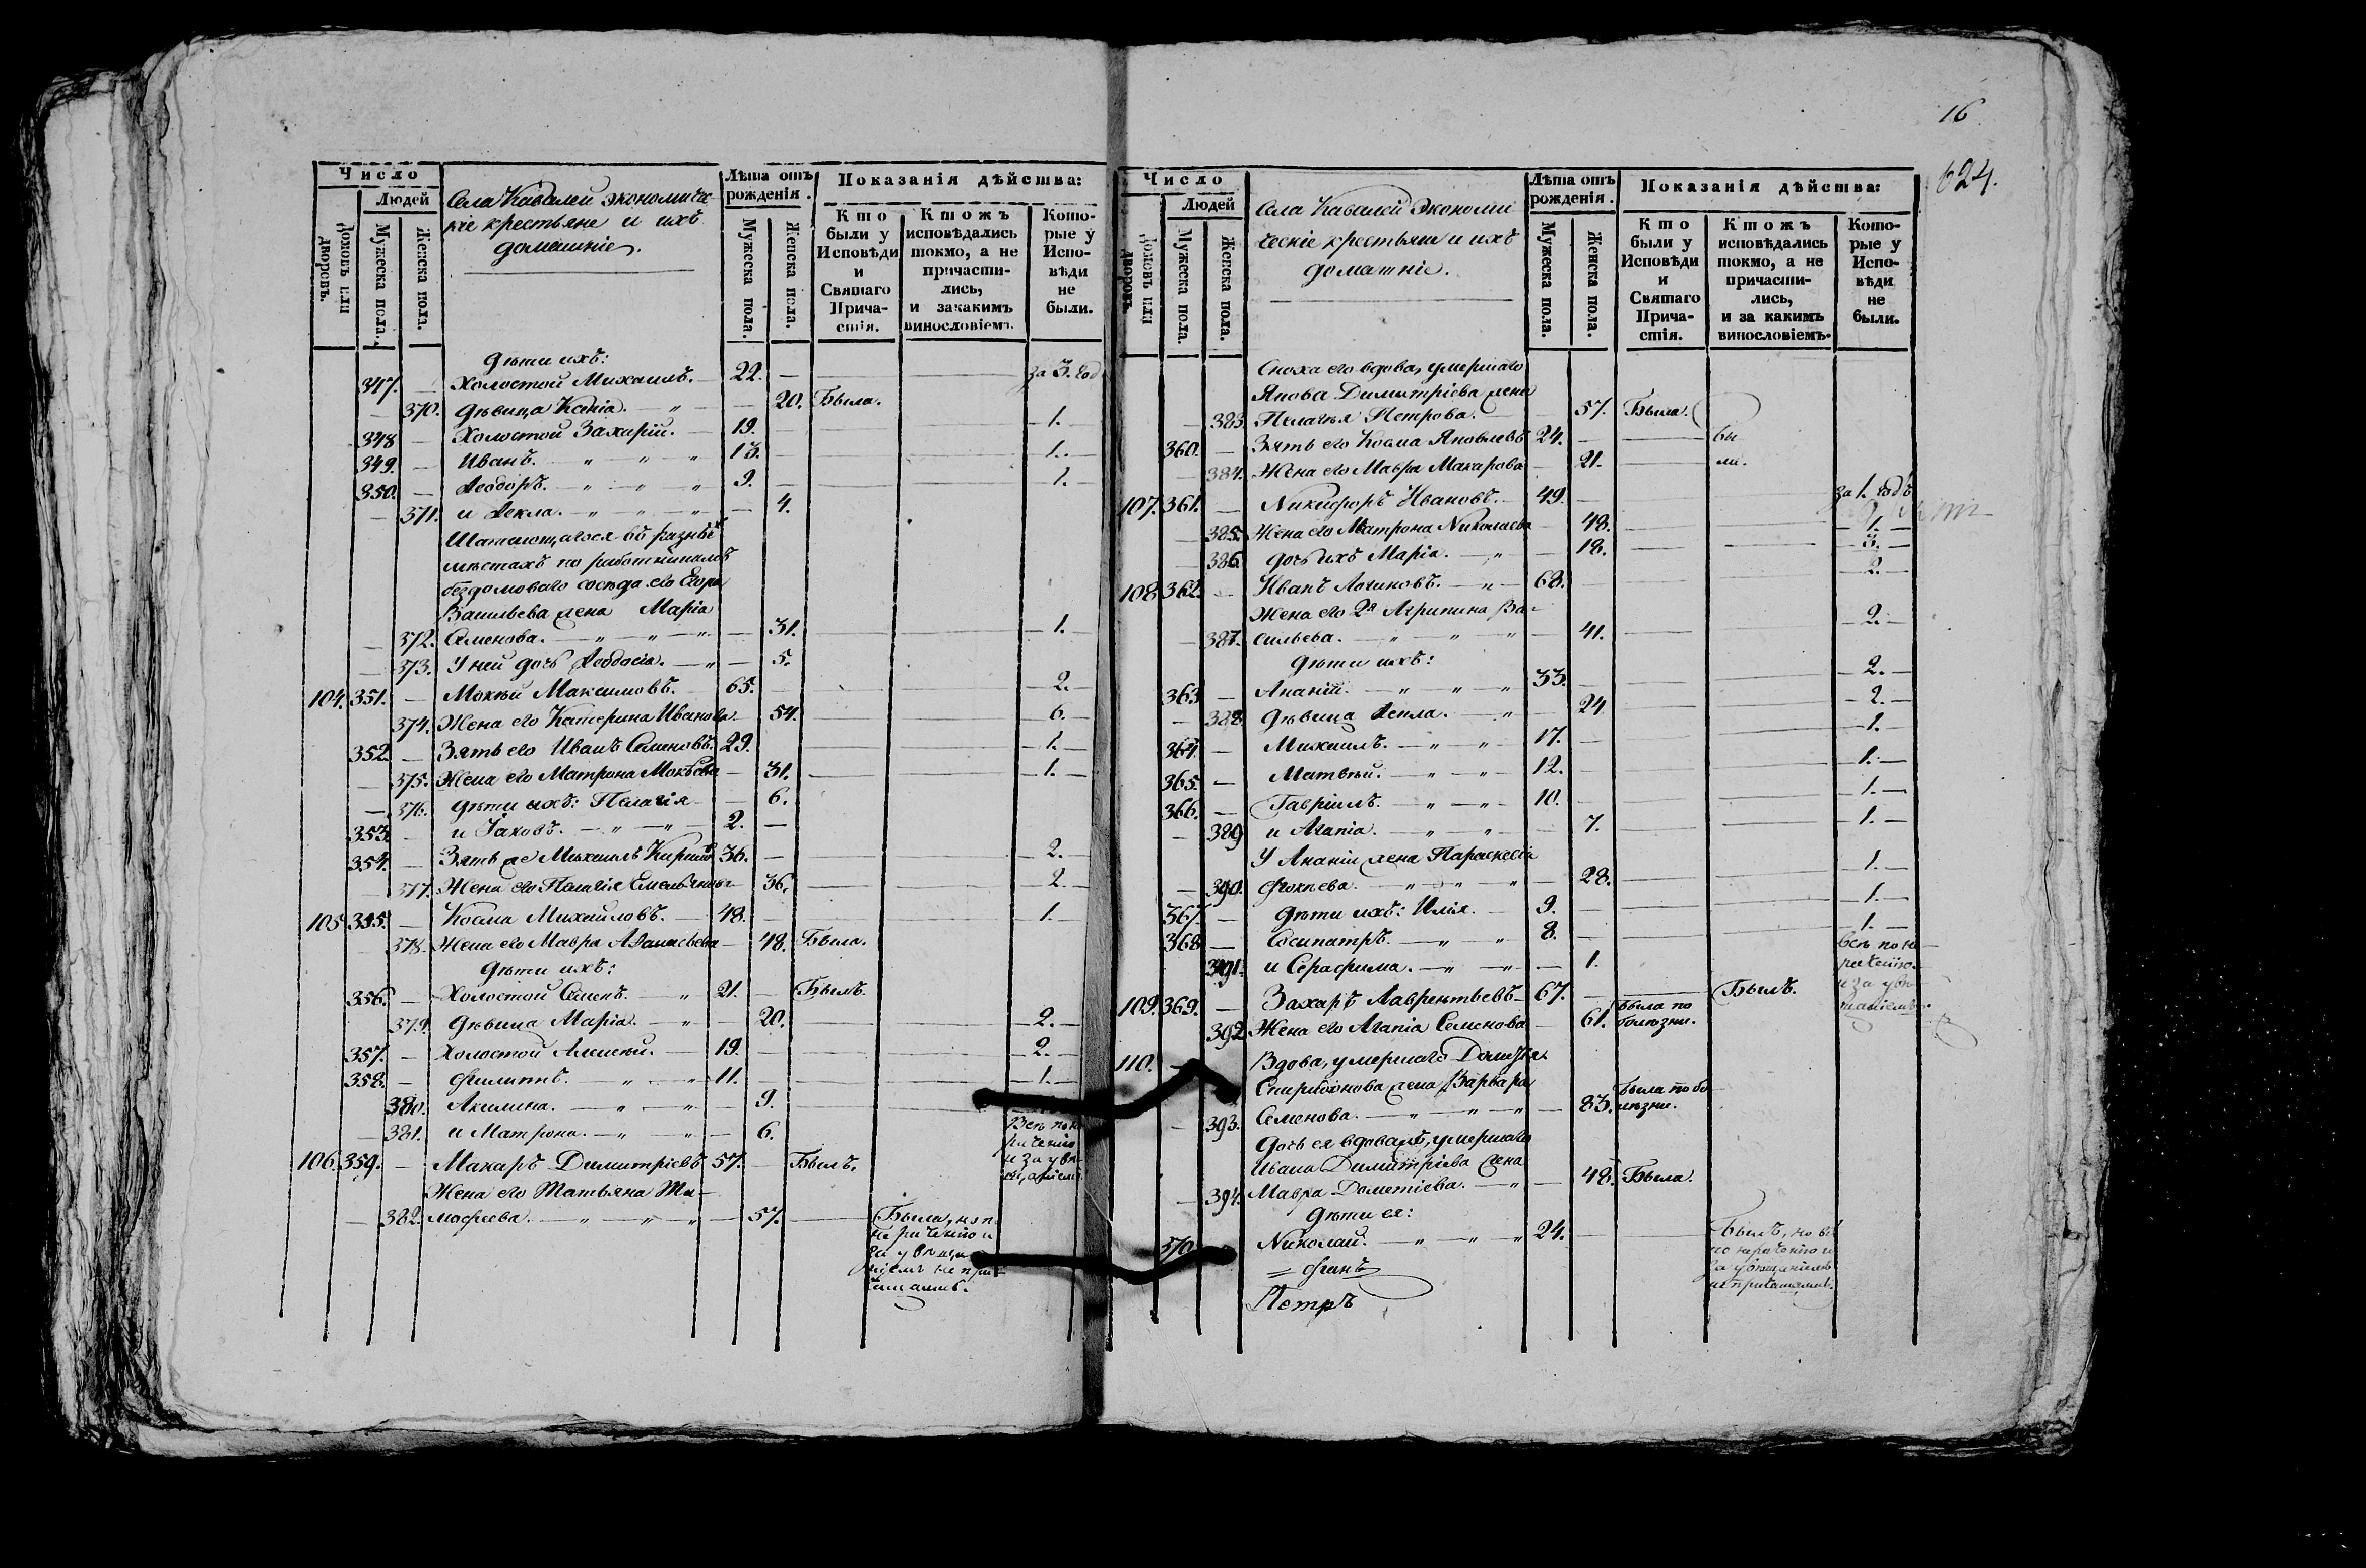 Число
Людей
Домовъ или дворовъ.
Мужеска пола.
Женска пола.
Села Кавалей экономиче-
скіе крестьяне и ихъ
домашніе.
Лѣта отъ рожденія.
Мужеска пола.
Женска пола.
Показанія дѣйства:
Кто были у Исповѣди и Святаго Прича-стія.
Ктожъ исповѣдались токмо, а не причасти-лись, и закакимъ винословіемъ.
Кото-рые у Испо-вѣди не были.
Дѣти ихъ:
347. — Холостой Михаилъ. — 22. — за 3. год
— 370. Дѣвица Ксенія. — „ — 20. Была.
348 — Холостой Захарій. — 19. — 1. —
349. — Иванъ. — „ „ „ 13. — 1. —
350. — Ѳеодоръ. — „ — „ — „ 9. — 1.
— 371. и Ѳекла. — „ — „ — „ — 4.
Шатающагося въ разныхъ
мѣстахъ по работникамъ
бездомоваго сосѣда его Егора
Васильева жена Марія
— 372. Семенова. — „ — „ — „ — 31. — 1. —
— 373. У ней дочь Ѳеодосія. — „ — 5.
104. 351. — Мокѣй Максимовъ. — 65. — 2. —
374. Жена его Катерина Иванова — 54. — 6. —
352. — Зять его Иванъ Семеновъ. 29. — 1. —
— 375. Жена его Матрона Мокѣева — 31. — 1. —
— 376. Дѣти ихъ: Пелагія — 6.
353. — и Іаковъ. — „ — „ — 2. —
354. — Зять же Михаилъ 36. — 2. —
— 377. Жена его Пелагія Емельянова — 36. — 2. —
105 355. — Косма Михайловъ. — 48. — 1. —
378. Жена его Мавра Аѳанасьева — 48. Была.
Дѣти ихъ:
356. — Холостой Семенъ. — „ 21. — Былъ.
379. Дѣвица Марія. — „ — 20. — 2. —
357. — Холостой Алексѣй. — 19. — 2. —
358. — Филиппъ. — „ — „ 11. — 1. —
380. Акилина. — „ — „ — 9.
— 381. и Матрона. — „ — „ — 6.
Всѣ по не
раченію
и за увѣ
щаніемъ
106. 359. — Макаръ Димитріевъ 57. — Былъ.
Жена его Татьяна Ти-
— 382. мофеева. — „ — „ — „ — 57. — Была, но по
нераченію и
за увѣща
ніемъ не при
чащалась.
16
624.
Число
Людей
Домовъ или дворовъ.
Мужеска пола.
Женска пола.
Села Кавалей Экономи
ческіе крестьяне и ихъ
домашніе.
Лѣта отъ рожденія.
Мужеска пола.
Женска пола.
Показанія дѣйства:
Кто были у Исповѣди и Святаго Прича-стія.
Ктожъ исповѣдались токмо, а не причасти-лись, и за какимъ винословіемъ.
Кото-рые у Испо-вѣди не были.
Сноха его вдова, умершаго
Якова Димитріева жена
— 383 Пелагея Петрова. — 57. Была.
360. — Зять его Косма Яковлевъ 24. — бы
384. Жена его Мавра Макарова — 21. — ли.
107. 361. — Никифоръ Ивановъ. — 49. — за 1. годъ
— 385. Жена его Матрона Николаева — 48. — 1. —
— 386. дочь ихъ Марія. — „ — 18. — 3. —
108. 362. — Иванъ Логиновъ. — „ — 68. — 2. —
Жена его 2я Агрипина Ва-
— 387. сильева. — „ — „ — „ — 41. — 2. —
Дѣти ихъ:
363. — Ананій. — „ — „ — „ 33. — 2. —
— 388. Дѣвица Ѳекла. — „ — 24 — 2. —
364. — Михаилъ. — „ — „ — 17. — 1. —
365. — Матвѣй. — „ — „ — 12. — 1. —
366. — Гавріилъ. — „ — „ — 10. — 1. —
— 389 и Агапіа. — „ — „ — 7. — 1. —
У Ананіи жена Параскевія
— 390. Фокѣева. — „ — „ — „ — 28. — 1. —
367. — Дѣти ихъ: Илія. — 9. — 1. —
368 — Сосипатръ. — „ — „ 8. — 1. —
391. и Серафима. — „ — „ — 1.
всѣ по не
раченію.
и за увѣ
щаніемъ.
109. 369. — Захаръ Лаврентьевъ — 67. — Былъ.
392 Жена его Агапіа Семенова — 61. была по
болѣзни.
110. — Вдова, умершаго
Спиридонова жена Варвара
— 393. Семенова. — „ — „ — „ — 83. была по бо
лѣзни.
Дочь ея вдова жъ, умершаго
Ивана Димитріева жена
— 394. Мавра Дометіева. — „ — 48. Была.
Дѣти ея:
370 Николай. — „ — „ — „ 24. — Былъ, но
по нераченію и
за увѣщаніемъ
не причащался.
Петръ